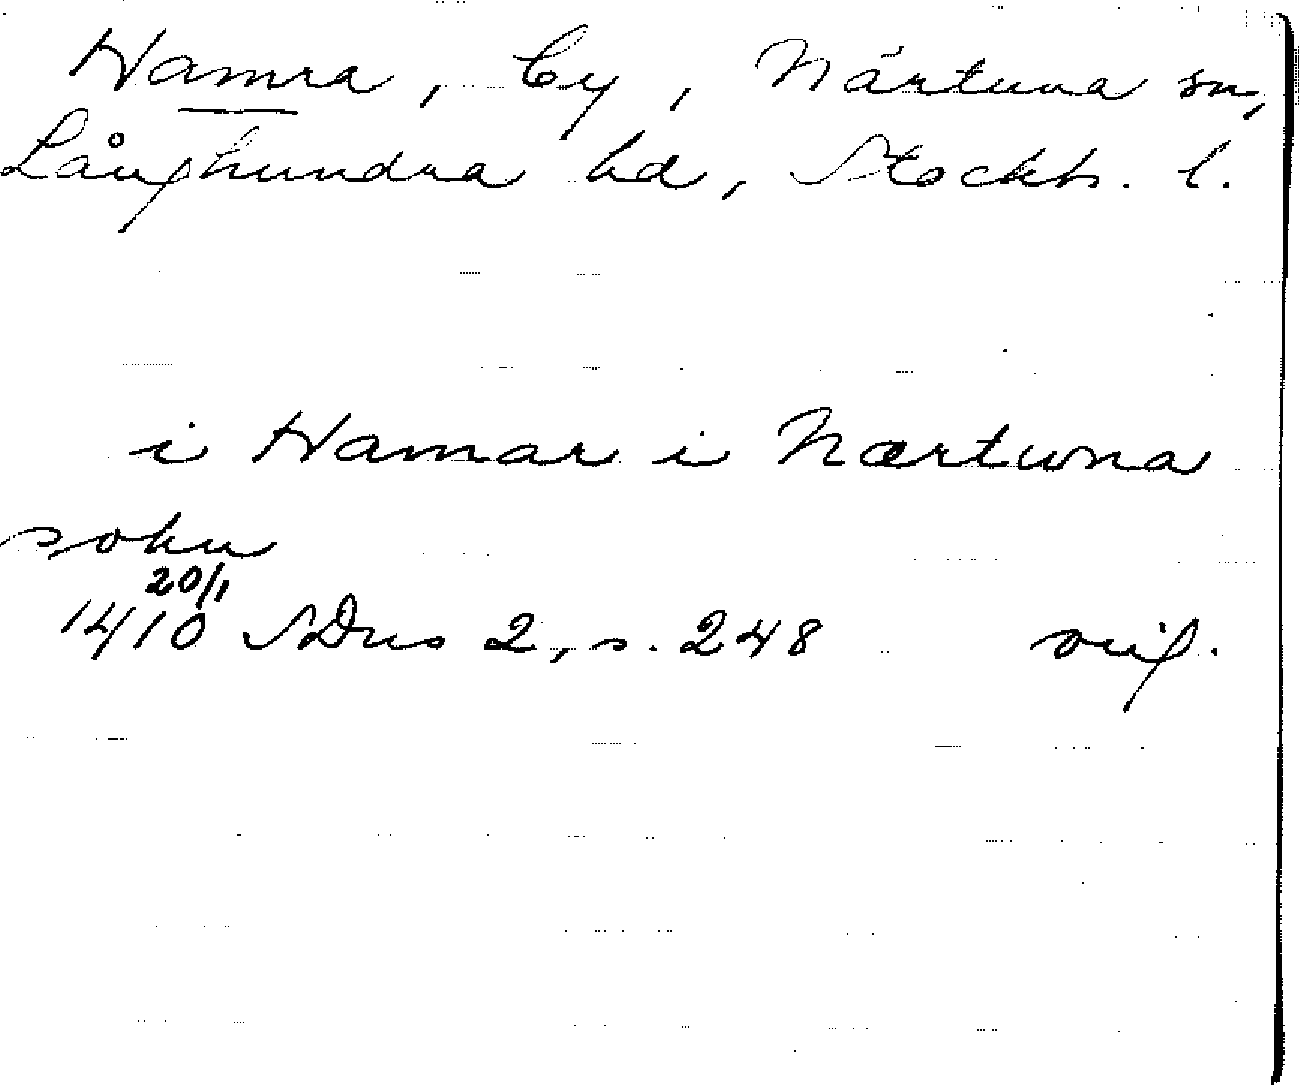 Hamra, by, Närtuna sn,
Långhundra hd, Stockh. l.
i Hamar i Nærtwna
sokn
20/1
1410 SDns 2, s. 248 orig.